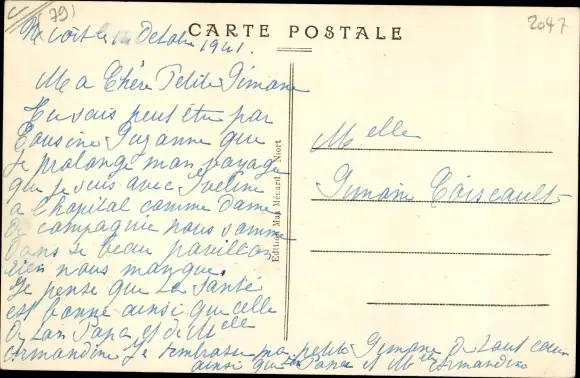 791
2047
CARTE POSTALE
Niort le 14 Octobre 1941.
Ma Chère Petite Simone
Tu sais peut être par
Cousine Suzanne que
je prolonge mon voyage
que je suis avec Eveline
a l'hopital comme Dame
de compagnie nous somme
dans se beau pavillon
rien nous manque.
Je pense que ta santé
est bonne ainsi que celle
de ton Papa et de Melle
Armandine Je t'embrasse ma petite Simone de tout coeur
ainsi que ton Papa et Melle Armandine
Edition Max Ménard, Niort
Melle
Simone